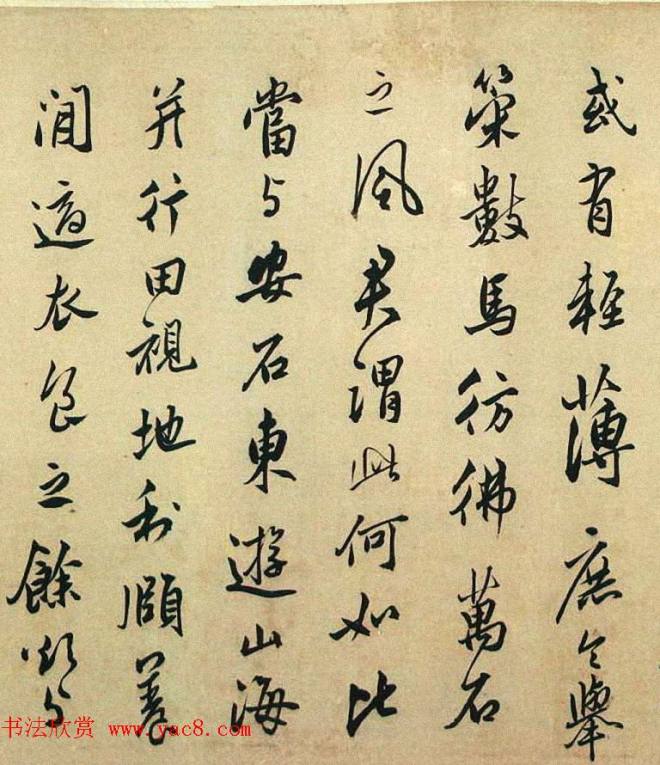 或有輕薄庶令舉
策數馬彷彿萬石
之風君謂此何如比
當与安石東遊山海
并行田視地利頤養
閒適衣食之餘欲与
书法欣赏 www.yac8.com